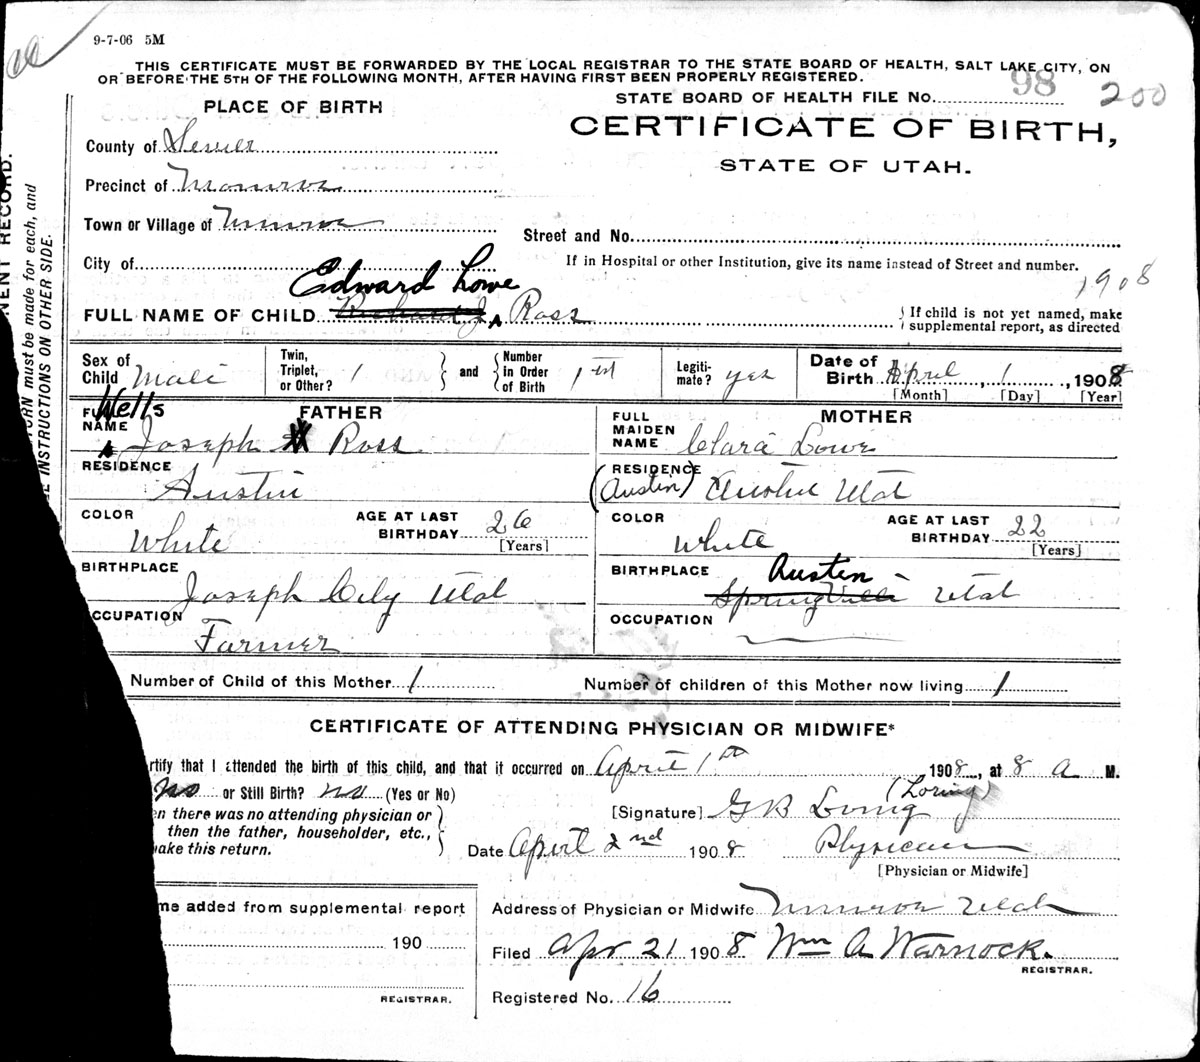 9-7-06 5M
THIS CERTIFICATE MUST BE FORWARDED BY THE LOCAL REGISTRAR TO THE STATE BOARD OF HEALTH, SALT LAKE CITY, ON
OR BEFORE THE 5TH OF THE FOLLOWING MONTH, AFTER HAVING FIRST BEEN PROPERLY REGISTERED.
STATE BOARD OF HEALTH FILE No. 98 200
PLACE OF BIRTH
CERTIFICATE OF BIRTH,
STATE OF UTAH.
County of Sevier
Precinct of Monroe
Town or Village of Monroe
Street and No.
City of
If in Hospital or other Institution, give its name instead of Street and number.
1908
Edward Lowe
FULL NAME OF CHILD Richard J. Ross
If child is not yet named, make
supplemental report, as directed
Sex of Child Male Twin, Triplet, or Other? 1 and Number in Order of Birth 1st Legitimate? yes Date of Birth April, 1, 1908
[Month] [Day] [Year]
NENT RECORD.
URN must be made for each, and
E INSTRUCTIONS ON OTHER SIDE.
FATHER
FULL NAME Wells Joseph Ross
MOTHER
FULL MAIDEN NAME Clara Lowe
RESIDENCE Austin
RESIDENCE (Austin) Austin Utah
COLOR White AGE AT LAST BIRTHDAY 26 [Years]
COLOR White AGE AT LAST BIRTHDAY 22 [Years]
BIRTHPLACE Joseph City Utah
BIRTHPLACE Austen Springville Utah
OCCUPATION Farmer
OCCUPATION
Number of Child of this Mother 1 Number of children of this Mother now living 1
CERTIFICATE OF ATTENDING PHYSICIAN OR MIDWIFE*
rtify that I attended the birth of this child, and that it occurred on April 1st 1908, at 8 a M.
no or Still Birth? no (Yes or No)
(Loring)
[Signature] G B Loring
en there was no attending physician or
then the father, householder, etc.,
ake this return.
Date April 2nd 1908 Physician
[Physician or Midwife]
me added from supplemental report
190
REGISTRAR.
Address of Physician or Midwife Monroe Utah
Filed Apr 21 1908 Wm A Warnock.
REGISTRAR.
Registered No. 16